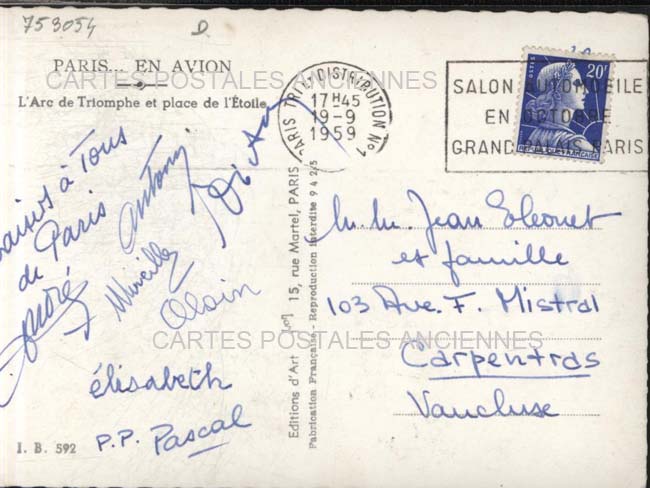 753054
D
PARIS... EN AVION
L'Arc de Triomphe et place de l'Étoile
CARTES POSTALES ANCIENNES
PARIS TRI ET DISTRIBUTION No1
17H45
19-9
1959
SALON AUTOMOBILE
EN OCTOBRE
GRAND PALAIS PARIS
POSTES
20F
RÉPUBLIQUE FRANÇAISE
à Tous
de Paris
André
Antony
Mireille
Alain
élisabeth
P.P. Pascal
I. B. 592
Editions d'Art 15, rue Martel, PARIS
Fabrication Française - Reproduction interdite 9 4 2/5
M.M. Jean
et famille
103 Ave. F. Mistral
CARTES POSTALES ANCIENNES
Carpentras
Vaucluse